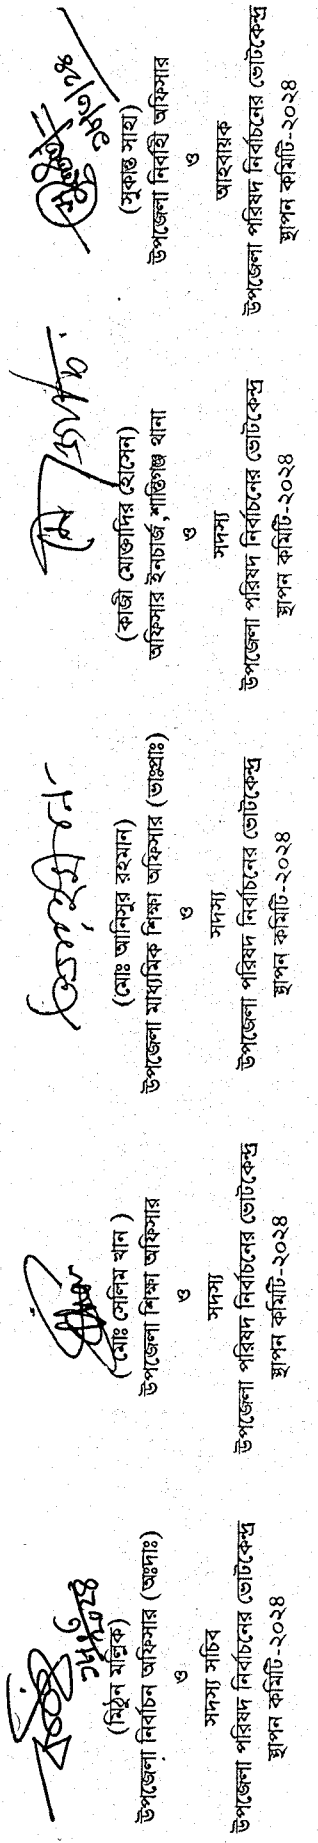 (মিঠুন মল্লিক)
উপজেলা নির্বাচন অফিসার (অঃদাঃ)
ও
সদস্য সচিব
উপজেলা পরিষদ নির্বাচনের ভোটকেন্দ্র
স্থাপন কমিটি-২০২৪
(মোঃ সেলিম খান )
উপজেলা শিক্ষা অফিসার
ও
সদস্য
উপজেলা পরিষদ নির্বাচনের ভোটকেন্দ্র
স্থাপন কমিটি-২০২৪
(মোঃ আনিসুর রহমান)
উপজেলা মাধ্যমিক শিক্ষা অফিসার (ভাঃপ্রাঃ)
ও
সদস্য
উপজেলা পরিষদ নির্বাচনের ভোটকেন্দ্র
স্থাপন কমিটি-২০২৪
(কাজী মোক্তাদির হোসেন)
অফিসার ইনচার্জ,শান্তিগঞ্জ থানা
ও
সদস্য
উপজেলা পরিষদ নির্বাচনের ভোটকেন্দ্র
স্থাপন কমিটি-২০২৪
(সুকান্ত সাহা)
উপজেলা নির্বাহী অফিসার
ও
আহবায়ক
উপজেলা পরিষদ নির্বাচনের ভোটকেন্দ্র
স্থাপন কমিটি-২০২৪